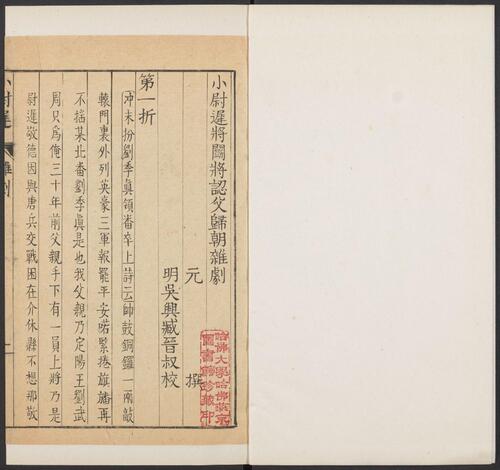 小尉遲將鬬將認父歸朝雜劇
元 撰
明吳興臧晉叔校
哈佛大學哈佛燕京圖書館珍藏印
第一折
冲末扮劉季眞領番卒上詩云帥鼓銅鑼一兩敲
轅門裏外列英豪三軍報罷平安喏緊捲旗旛再
不搖某北番劉季眞是也我父親乃定陽王劉武
周只爲俺三十年前父親手下有一員上將乃是
尉遲敬德因與唐兵交戰困在介休縣不想那敬
小尉遲 雜劇 一